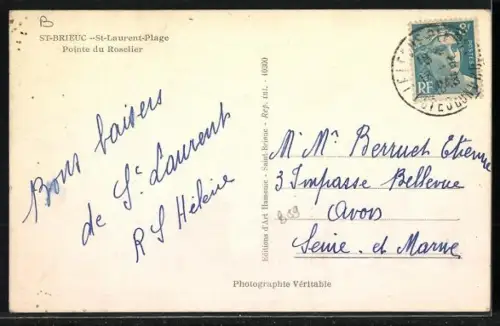 B
ST-BRIEUC - St-Laurent-Plage
Pointe du Roselier
Bons baisers
de St Laurent
R S Hélène
Editions d'Art Hamonic - Saint-Brieuc - Rep. int. - 40300
RF
POSTES
M Mme Berruet Etienne
3 Impasse Bellevue
Avon
Seine et Marne
Photographie Véritable